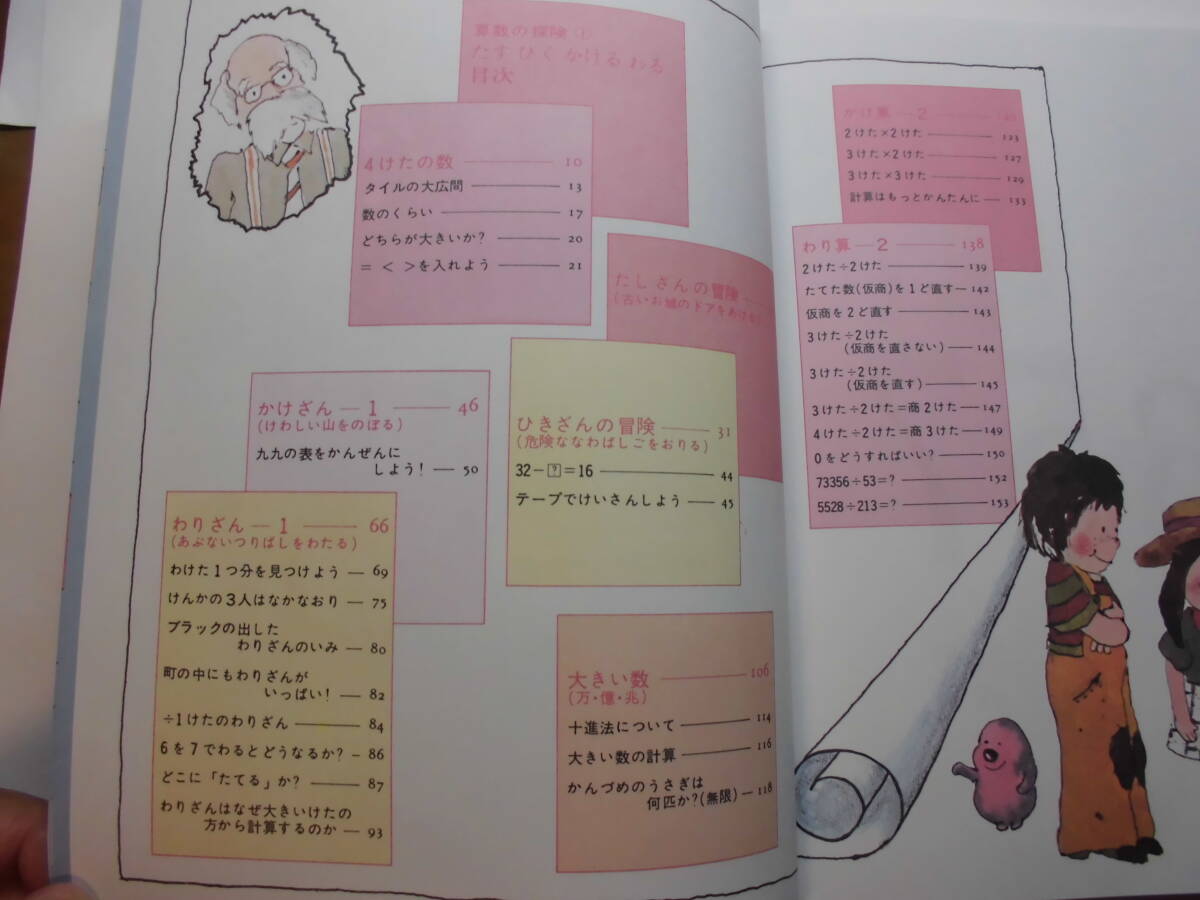 算数の探険(1)
たす ひく かける わる
目次
4けたの数 ——— 10
タイルの大広間 ——— 13
数のくらい ——— 17
どちらが大きいか? ——— 20
= < >を入れよう ——— 21
たしざんの冒険
(古いお城のドアをあける)
ひきざんの冒険 —— 31
(危険ななわばしごをおりる)
32−?=16 ——— 44
テープでけいさんしよう —— 45
かけざん — 1 ——— 46
(けわしい山をのぼる)
九九の表をかんぜんに
しよう! — 50
わりざん — 1 ——— 66
(あぶないつりばしをわたる)
わけた1つ分を見つけよう — 69
けんかの3人はなかなおり — 75
ブラックの出した
わりざんのいみ — 80
町の中にもわりざんが
いっぱい! — 82
÷1けたのわりざん —— 84
6を7でわるとどうなるか? - 86
どこに「たてる」か? —— 87
わりざんはなぜ大きいけたの
方から計算するのか — 93
大きい数 ——— 106
(万・億・兆)
十進法について ——— 114
大きい数の計算 ——— 116
かんづめのうさぎは
何匹か?(無限) — 118
かけ算 — 2
2けた×2けた ——— 123
3けた×2けた ——— 127
3けた×3けた ——— 129
計算はもっとかんたんに — 133
わり算 — 2 ——— 138
2けた÷2けた ——— 139
たてた数(仮商)を1ど直す— 142
仮商を2ど直す ——— 143
3けた÷2けた
(仮商を直さない) — 144
3けた÷2けた
(仮商を直す) —— 145
3けた÷2けた=商2けた — 147
4けた÷2けた=商3けた — 149
0をどうすればいい? —— 150
73356÷53=? ——— 152
5528÷213=? ——— 153